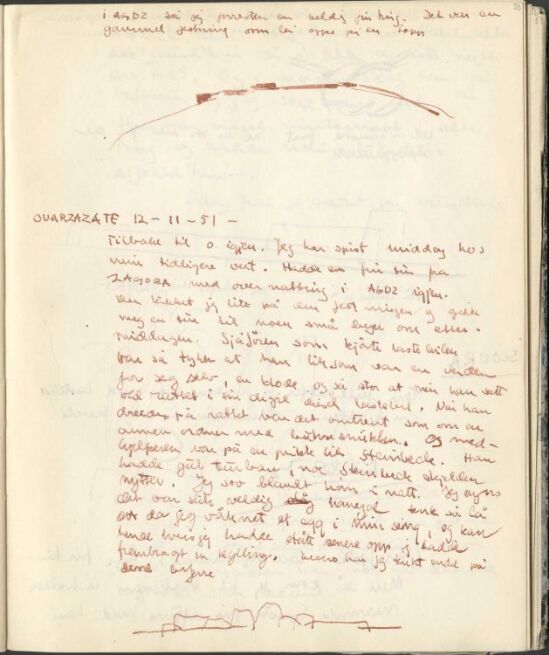 i AGDZ så jeg forresten en veldig fin ting. Det var en
gammel festning som lå oppe på en topp
OUARZAZATE 12-11-51 -
Tilbake til O igjen. Jeg har spist middag hos
min tidligere vert. Hadde en fin tur fra
ZAGORA med overnatting i AGDZ igjen.
Der kikket jeg litt på den festningen og gikk
meg en tur til noen små byer om etter-
middagen. Sjåføren som kjørte lastebilen
var så tykk at han liksom var en verden
for seg selv, en klode, og så stor at når han satt
ved rattet i sin digre lastebil. Når han
på rattet var det omtrent som om en
annen ordner med. Og med-
hjelperen var på en prikk lik Steinbeck. Han
hadde gul turban, noe Steinbeck sjelden
nytter. Jeg sov blandt høns i natt. Jeg synes
det var veldig tenk så lå
da jeg våknet et egg i min seng, og kan
hende hvis jeg hadde stått senere opp hadde
frembragt en kylling. har jeg tenkt endel på